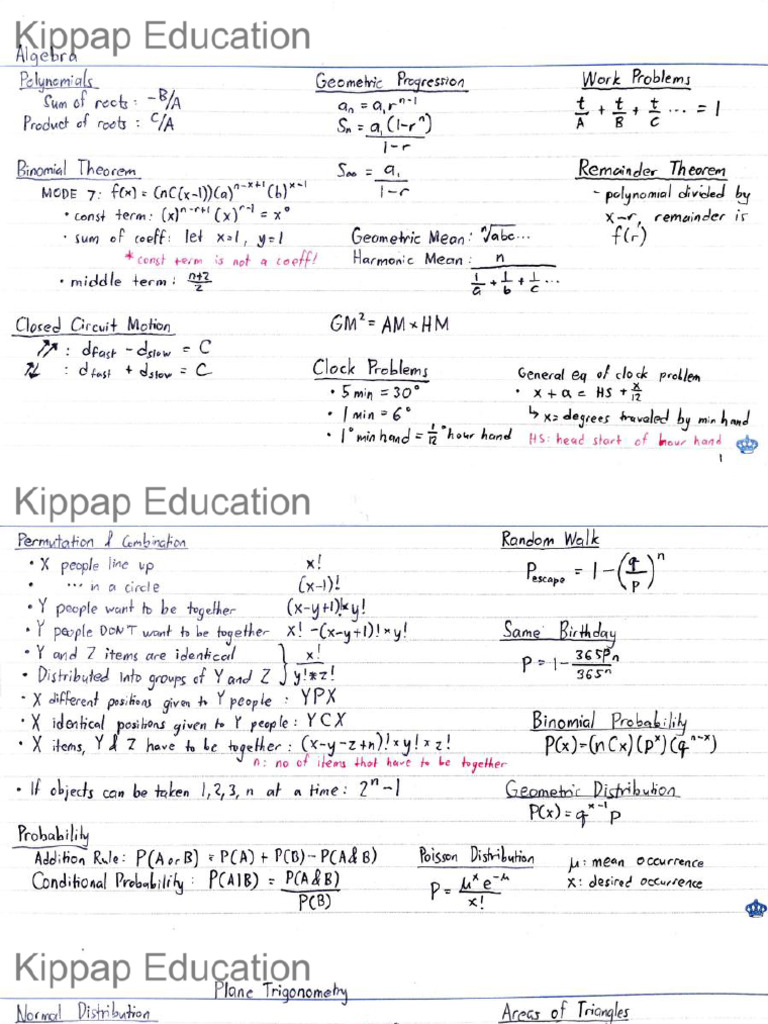 Kippap Education
Algebra
Polynomials
Sum of roots: -B/A
Product of roots: C/A
Binomial Theorem
MODE 7: f(x) = (nC(x-1))(a)^(n-x+1) (b)^(x-1)
• const term: (x)^(n-r+1) (x)^(r-1) = x^0
• sum of coeff: let x=1, y=1
* const term is not a coeff!
• middle term: (n+2)/2
Closed Circuit Motion
↗↗ : d_fast - d_slow = C
↗↙ : d_fast + d_slow = C
Geometric Progression
a_n = a_1 r^(n-1)
S_n = a_1(1-r^n) / (1-r)
S_∞ = a_1 / (1-r)
Geometric Mean: ⁿ√abc...
Harmonic Mean: n / (1/a + 1/b + 1/c ...)
GM² = AM × HM
Clock Problems
• 5 min = 30°
• 1 min = 6°
• 1° min hand = 1/12° hour hand
Work Problems
t/A + t/B + t/C ... = 1
Remainder Theorem
- polynomial divided by
x-r, remainder is
f(r)
General eq of clock problem
• x + a = HS + x/12
↳ x = degrees traveled by min hand
HS: head start of hour hand
1
Kippap Education
Permutation & Combination
• X people line up x!
• ... in a circle (x-1)!
• Y people want to be together (x-y+1)! * y!
• Y people DON'T want to be together x! - (x-y+1)! * y!
• Y and Z items are identical
• Distributed into groups of Y and Z } x! / (y! * z!)
• X different positions given to Y people: YPX
• X identical positions given to Y people: YCX
• X items, Y & Z have to be together: (x-y-z+n)! * y! * z!
n: no of items that have to be together
• If objects can be taken 1, 2, 3, n at a time: 2^n - 1
Probability
Addition Rule: P(A or B) = P(A) + P(B) - P(A&B)
Conditional Probability: P(A|B) = P(A&B) / P(B)
Random Walk
P_escape = 1 - (q/p)^n
Same Birthday
P = 1 - 365Pn / 365^n
Binomial Probability
P(x) = (nCx)(p^x)(q^(n-x))
Geometric Distribution
P(x) = q^(x-1) p
Poisson Distribution
P = μ^x e^(-μ) / x!
μ: mean occurrence
x: desired occurrence
Kippap Education
Plane Trigonometry
Normal Distribution
Areas of Triangles